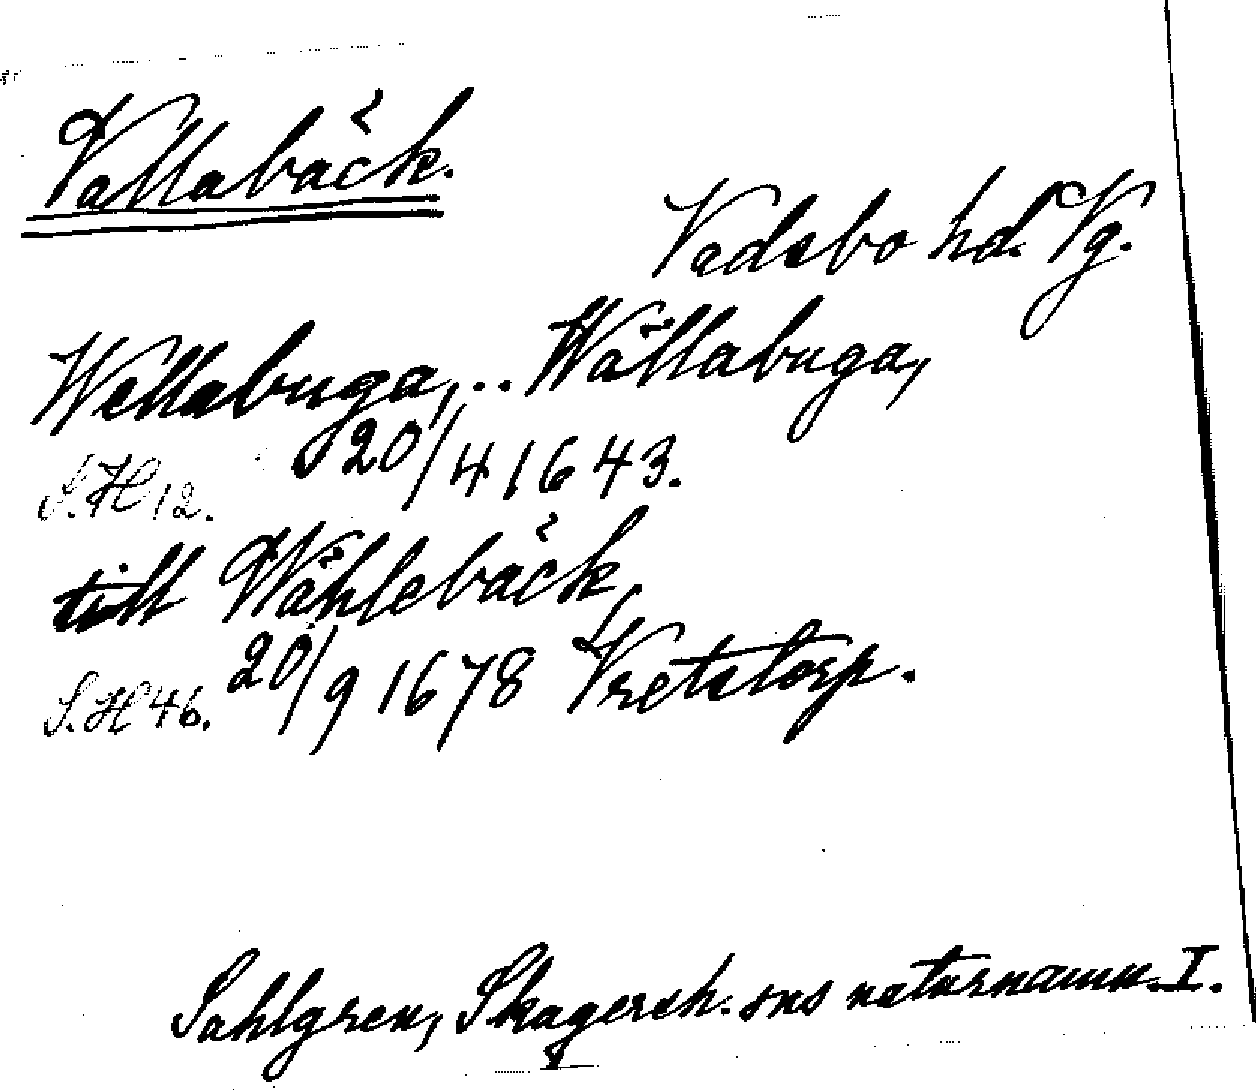 Vallabäck.
Vedsbo hd. Vg.
Wellabuga, .. Wällabuga,
S.H 12. 20/4 1643.
till Wåhlebäck,
S.H 46. 20/9 1678 Vretstorp.
Sahlgren, Skagersh. sns naturnamn. I.